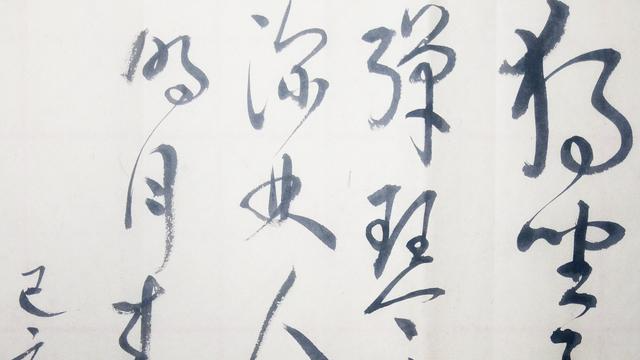 独坐
弹琴
深林人
明月来
己